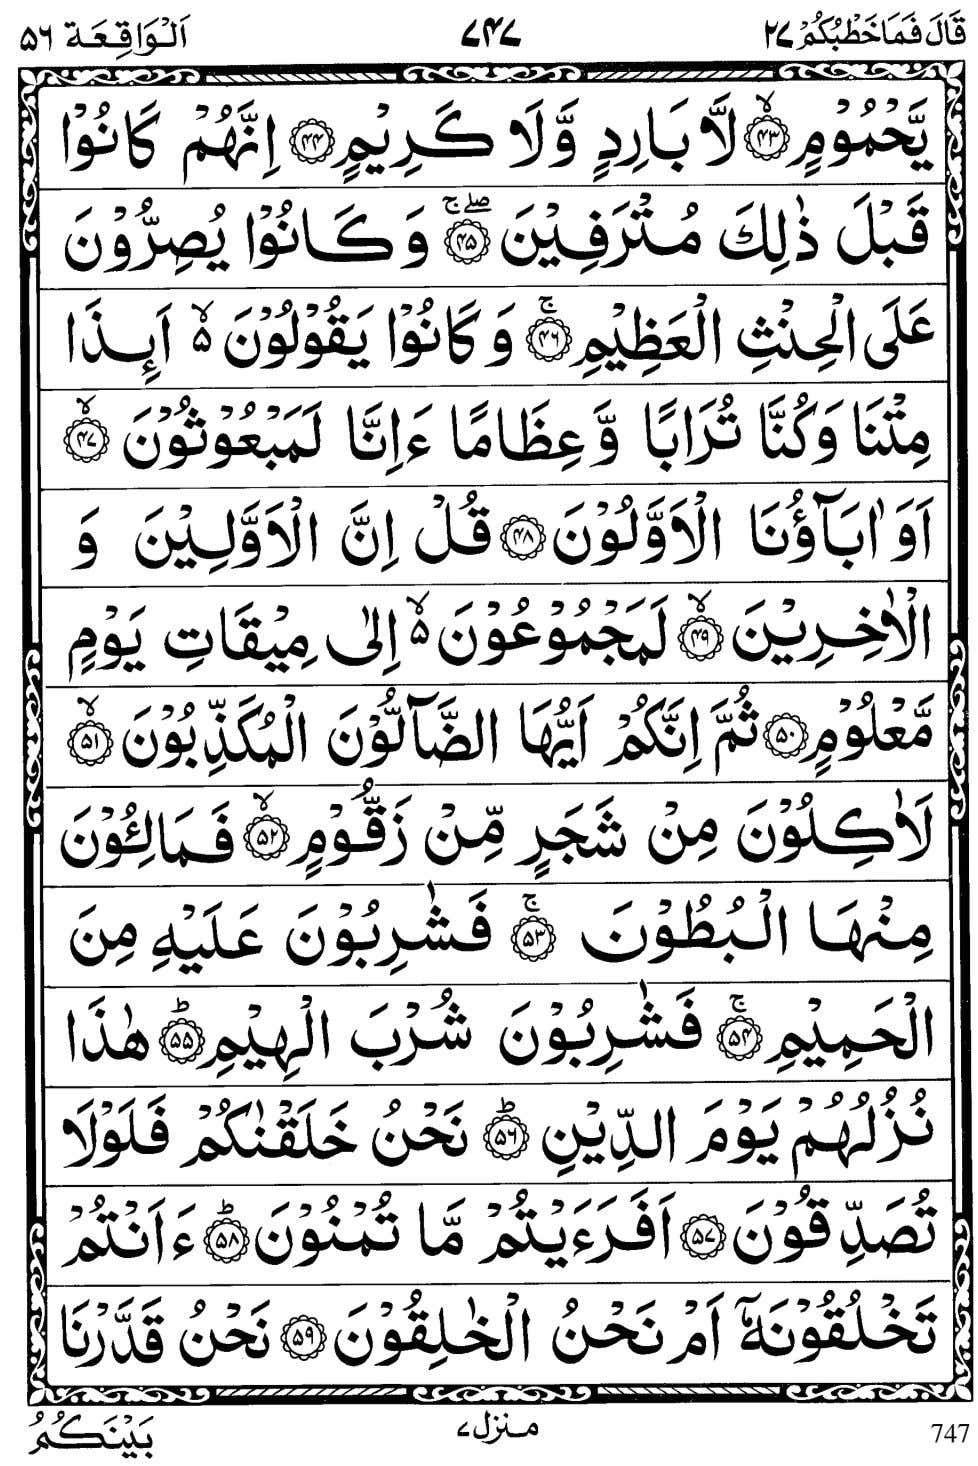 قَالَ فَمَا خَطْبُكُمْ ٢٧ ٧٤٧ اَلْوَاقِعَة ٥٦
يَّحْمُوْمٍ ﴿٤٣﴾ۙ لَّا بَارِدٍ وَّلَا كَرِيْمٍ ﴿٤٤﴾ اِنَّهُمْ كَانُوْا
قَبْلَ ذٰلِكَ مُتْرَفِيْنَ ﴿٤٥﴾ۖۚ وَكَانُوْا يُصِرُّوْنَ
عَلَى الْحِنْثِ الْعَظِيْمِ ﴿٤٦﴾ۚ وَكَانُوْا يَقُوْلُوْنَ ۙ۬ اَىِٕذَا
مِتْنَا وَكُنَّا تُرَابًا وَّعِظَامًا ءَاِنَّا لَمَبْعُوْثُوْنَ ﴿٤٧﴾ۙ
اَوَاٰبَآؤُنَا الْاَوَّلُوْنَ ﴿٤٨﴾ قُلْ اِنَّ الْاَوَّلِيْنَ وَ
الْاٰخِرِيْنَ ﴿٤٩﴾ۙ لَمَجْمُوْعُوْنَ ۙ۬ اِلٰى مِيْقَاتِ يَوْمٍ
مَّعْلُوْمٍ ﴿٥٠﴾ ثُمَّ اِنَّكُمْ اَيُّهَا الضَّآلُّوْنَ الْمُكَذِّبُوْنَ ﴿٥١﴾ۙ
لَاٰكِلُوْنَ مِنْ شَجَرٍ مِّنْ زَقُّوْمٍ ﴿٥٢﴾ۙ فَمَالِـُٔوْنَ
مِنْهَا الْبُطُوْنَ ﴿٥٣﴾ۚ فَشٰرِبُوْنَ عَلَيْهِ مِنَ
الْحَمِيْمِ ﴿٥٤﴾ۚ فَشٰرِبُوْنَ شُرْبَ الْهِيْمِ ﴿٥٥﴾ؕ هٰذَا
نُزُلُهُمْ يَوْمَ الدِّيْنِ ﴿٥٦﴾ؕ نَحْنُ خَلَقْنٰكُمْ فَلَوْلَا
تُصَدِّقُوْنَ ﴿٥٧﴾ اَفَرَءَيْتُمْ مَّا تُمْنُوْنَ ﴿٥٨﴾ؕ ءَاَنْتُمْ
تَخْلُقُوْنَهٗٓ اَمْ نَحْنُ الْخٰلِقُوْنَ ﴿٥٩﴾ نَحْنُ قَدَّرْنَا
747 منزل ٧ بَيْنَكُمُ